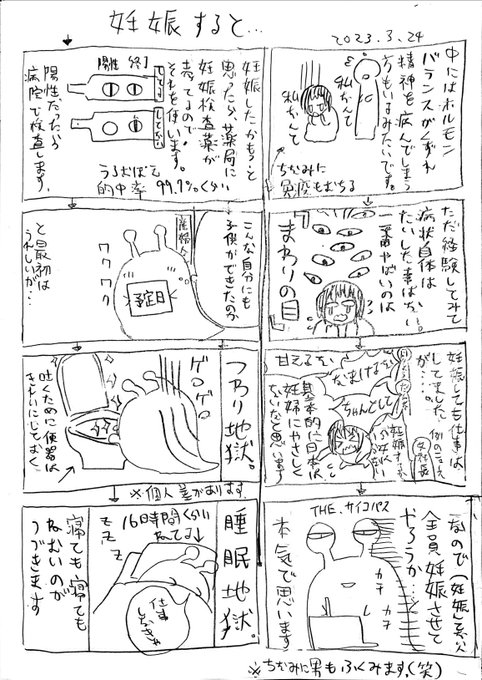 妊娠すると…
2023.3.24
妊娠したかも…と
思ったら、薬局に
妊娠検査薬が
売ってるので
それを使います。
陽性 終了
してる
してない
うろおぼえ
的中率 99.7%くらい
陽性だったら
病院で検査します。
こんな自分にも
子供ができたの？
産婦人
予定日
ワクワク
と最初は
うれしいが…
つわり地獄。
ゲロゲロ
吐くために便器は
きれいにしておく
※個人差があります
睡眠地獄。
16時間くらい
ねてます
ZZZ
仕事
しなきゃ
寝ても寝ても
ねむいのが
つづきます
中にはホルモン
バランスがくずれ
精神を病んでしまう
方もいるみたいです。
私なんて
私なんて
ちなみに
免疫もおちる
ただ経験してみて
病状自体は
たいした事はない。
一番やばいのは
まわりの目
妊娠しても仕事は
してました
が…。
女社長
甘えるな
なまけるな
ちゃんとして
基本的に日本は
妊婦にやさしく
ないなと思います
なので(妊娠)
全員妊娠させて
やろうか…と
本気で思います
THE.サイコパス
カチ カチ
※ちなみに男もふくみます。(笑)